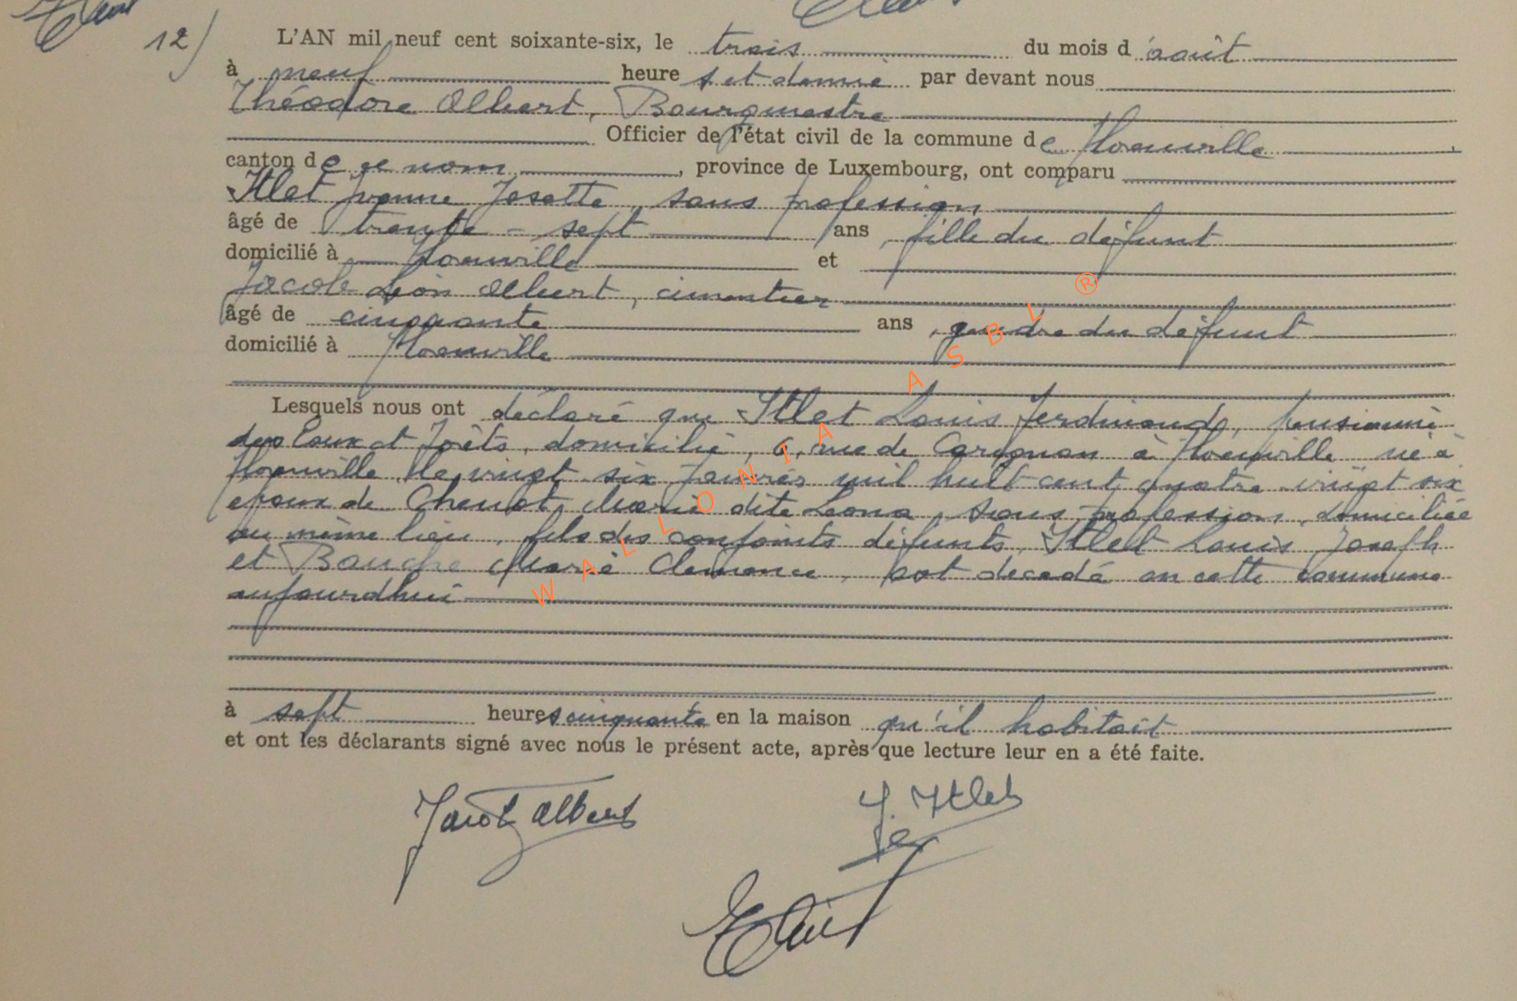 12)
L'AN mil neuf cent soixante-six, le trois du mois d'août
à neuf heures et demie par devant nous
Théodore Albert, Bourgmestre
Officier de l'état civil de la commune de Florenville
canton de ce nom, province de Luxembourg, ont comparu
Itlet Yvonne Josette, sans profession
âgé de trente-sept ans, fille du défunt
domicilié à Florenville et
Jacob Léon Albert, cimentier
âgé de cinquante ans, gendre du défunt
domicilié à Florenville
Lesquels nous ont déclaré que Itlet Louis Ferdinand, pensionné
des Eaux et Forêts, domicilié, 6, rue de Carignan à Florenville né à
Florenville le vingt six janvier mil huit cent quatre vingt six
époux de Chenot Marie dite Léona, sans profession, domiciliée
au même lieu, fils des conjoints défunts, Itlet Louis Joseph
et Bauche Marie Clémence, est décédé en cette commune
aujourd'hui
à sept heures cinquante en la maison qu'il habitait
et ont les déclarants signé avec nous le présent acte, après que lecture leur en a été faite.
Jacob Albert
Y. Itlet
WALLONIA ASBL ®